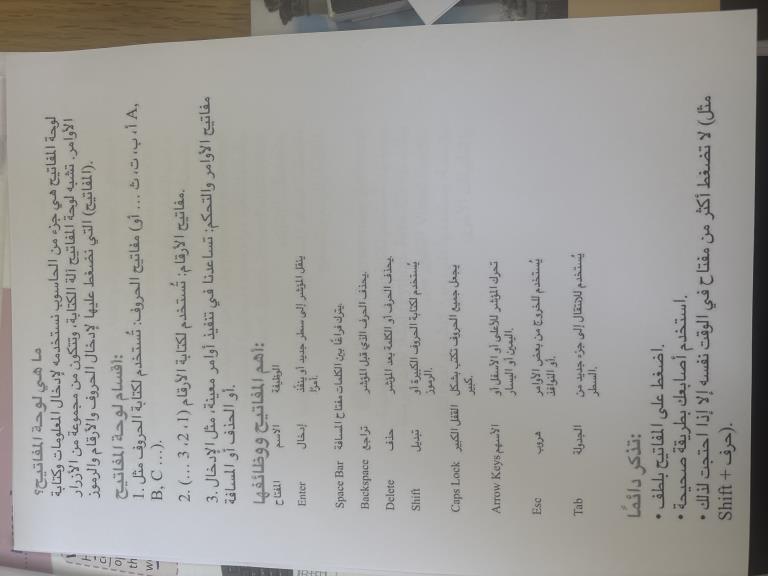 ما هي لوحة المفاتيح؟
لوحة المفاتيح هي جزء من الحاسوب نستخدمه لإدخال المعلومات وكتابة
الأوامر. تشبه لوحة المفاتيح آلة الكتابة، وتتكون من مجموعة من الأزرار
(المفاتيح) التي نضغط عليها لإدخال الحروف والأرقام والرموز.
أقسام لوحة المفاتيح:
1. مفاتيح الحروف: تُستخدم لكتابة الحروف مثل (أ، ب، ت، ث ... أو A,
B, C ...).
2. مفاتيح الأرقام: تُستخدم لكتابة الأرقام (1، 2، 3 ...).
3. مفاتيح الأوامر والتحكم: تساعدنا في تنفيذ أوامر معينة، مثل الإدخال
أو الحذف أو المسافة.
أهم المفاتيح ووظائفها:
المفتاح الاسم الوظيفة
Enter إدخال ينقل المؤشر إلى سطر جديد أو ينفّذ
أمرًا.
Space Bar مفتاح المسافة يترك فراغًا بين الكلمات.
Backspace تراجع يحذف الحرف الذي قبل المؤشر.
Delete حذف يحذف الحرف أو الكلمة بعد المؤشر.
Shift تبديل يُستخدم لكتابة الحروف الكبيرة أو
الرموز.
Caps Lock القفل الكبير يجعل جميع الحروف تكتب بشكل
كبير.
Arrow Keys الأسهم تحرك المؤشر للأعلى أو الأسفل أو
اليمين أو اليسار.
Esc هروب يُستخدم للخروج من بعض الأوامر
أو النوافذ.
Tab الجدولة يُستخدم للانتقال إلى جزء جديد من
السطر.
تذكر دائمًا:
• اضغط على المفاتيح بلطف.
• استخدم أصابعك بطريقة صحيحة.
• لا تضغط أكثر من مفتاح في الوقت نفسه إلا إذا احتجت لذلك (مثل
Shift + حرف).